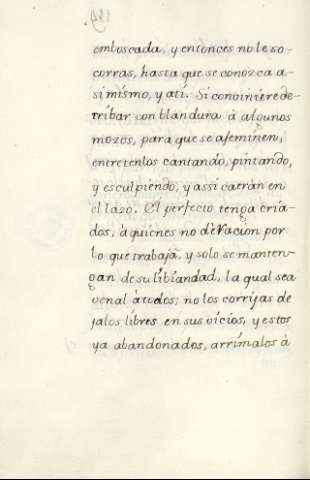 emboscada, y entonces no le so-
corras, hasta que se conozca a-
si mismo, y a ti. Si conviniere de-
tribar con blandura à algunos
mozos, para que se afeminen,
entretenlos cantando, pintando,
y esculpiendo, y assi caeràn en
el lazo. El perfecto tenga cria-
dos, à quienes no dè racion por
lo que trabajã, y solo se manten-
gan de su libiandad, la qual sea
venal à todos; no los corrijas de
jalos libres en sus vicios, y estos
ya abandonados, arrimalos à